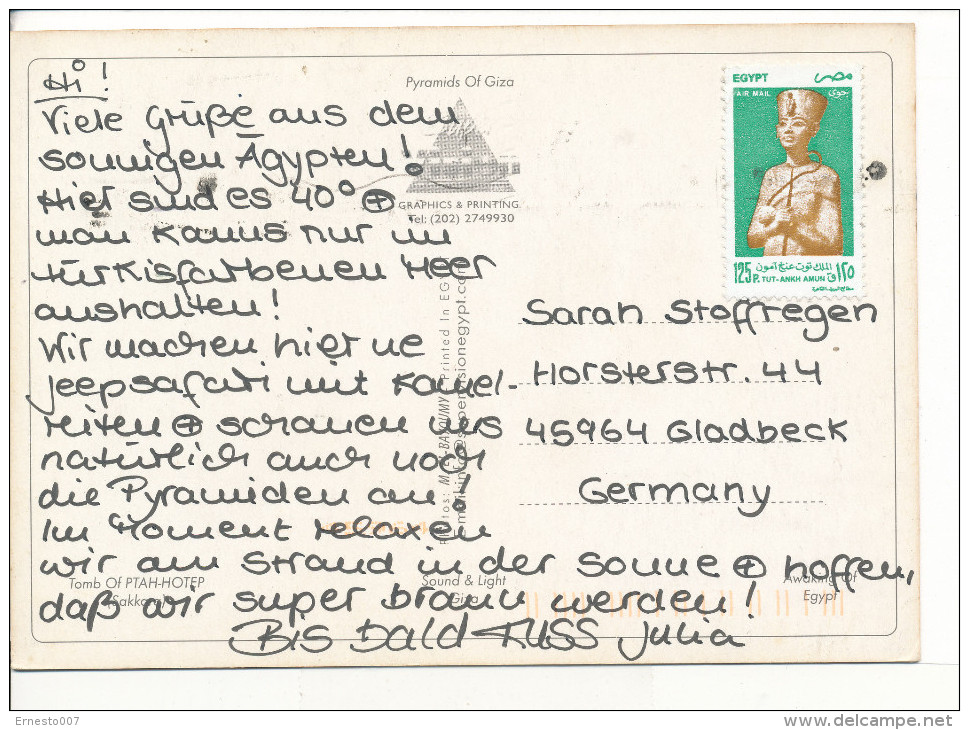 Hi!
Viele Grüße aus dem
sonnigen Ägypten!
Hier sind es 40° ⊕
man kanns nur im
türkisfarbenen Meer
aushalten!
Wir machen hier ne
Jeepsafari mit Kamel-
reiten ⊕ schauen uns
natürlich auch noch
die Pyramiden an!
Im Moment relaxen
wir am Strand in der Sonne ⊕ hoffen,
daß wir super braun werden!
Bis bald KUSS Julia
Pyramids Of Giza
GRAPHICS & PRINTING
Tel: (202) 2749930
Printed In
EGYPT
مصر
AIR MAIL
جوى
الملك توت عنخ آمون
125P.
١٢٥ق
TUT-ANKH AMUN
Sarah Stoffregen
Horsterstr. 44
45964 Gladbeck
Germany
Tomb Of PTAH-HOTEP
Sound & Light
Giza
Awaking Of
Egypt
Ernesto007
delcampe.net